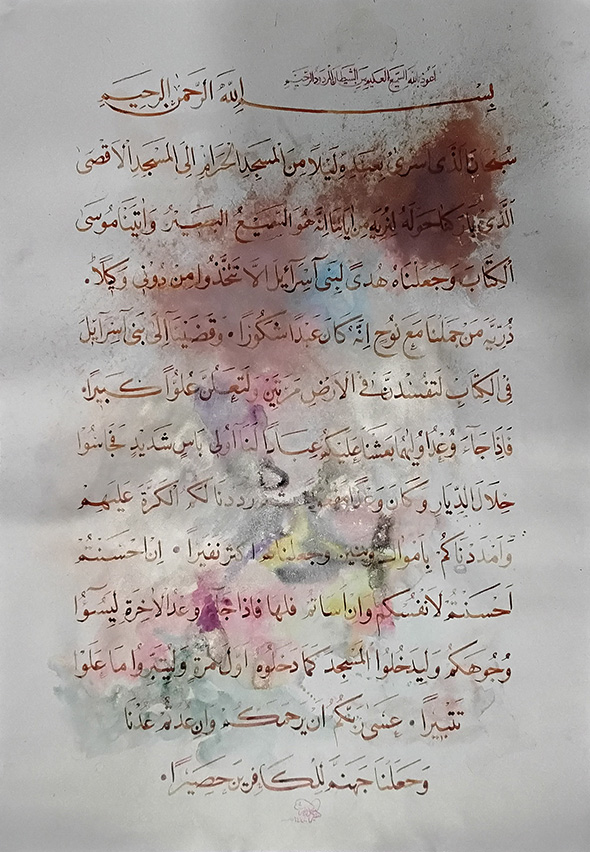 اعوذ بالله السميع العليم من الشيطان
بسم الله الرحمن الرحيم
سبحان الذى اسرى بعبده ليلا من المسجد الحرام الى المسجد الاقصى
الذى باركنا حوله لنريه من اياتنا انه هو السميع البصير واتينا موسى
الكتاب وجعلناه هدى لبنى اسرآئيل الا تتخذوا من دونى وكيلا.
ذرية من حملنا مع نوح انه كان عبدا شكورا. وقضينا الى بنى اسرآئيل
فى الكتاب لتفسدن فى الارض مرتين ولتعلن علوا كبيرا.
فاذا جاء وعد اوليهما بعثنا عليكم عبادا لنا اولى باس شديد فجاسوا
خلال الديار وكان وعدا رددنا لكم الكرة عليهم
وامددناكم باموال وبنين وجعلناكم اكثر نفيرا. ان احسنتم
احسنتم لانفسكم وان اساتم فلها فاذا جاء وعد الاخرة ليسوؤا
وجوهكم وليدخلوا المسجد كما دخلوه اول مرة وليتبروا ما علوا
تتبيرا. عسى ربكم ان يرحمكم وان عدتم عدنا
وجعلنا جهنم للكافرين حصيرا.